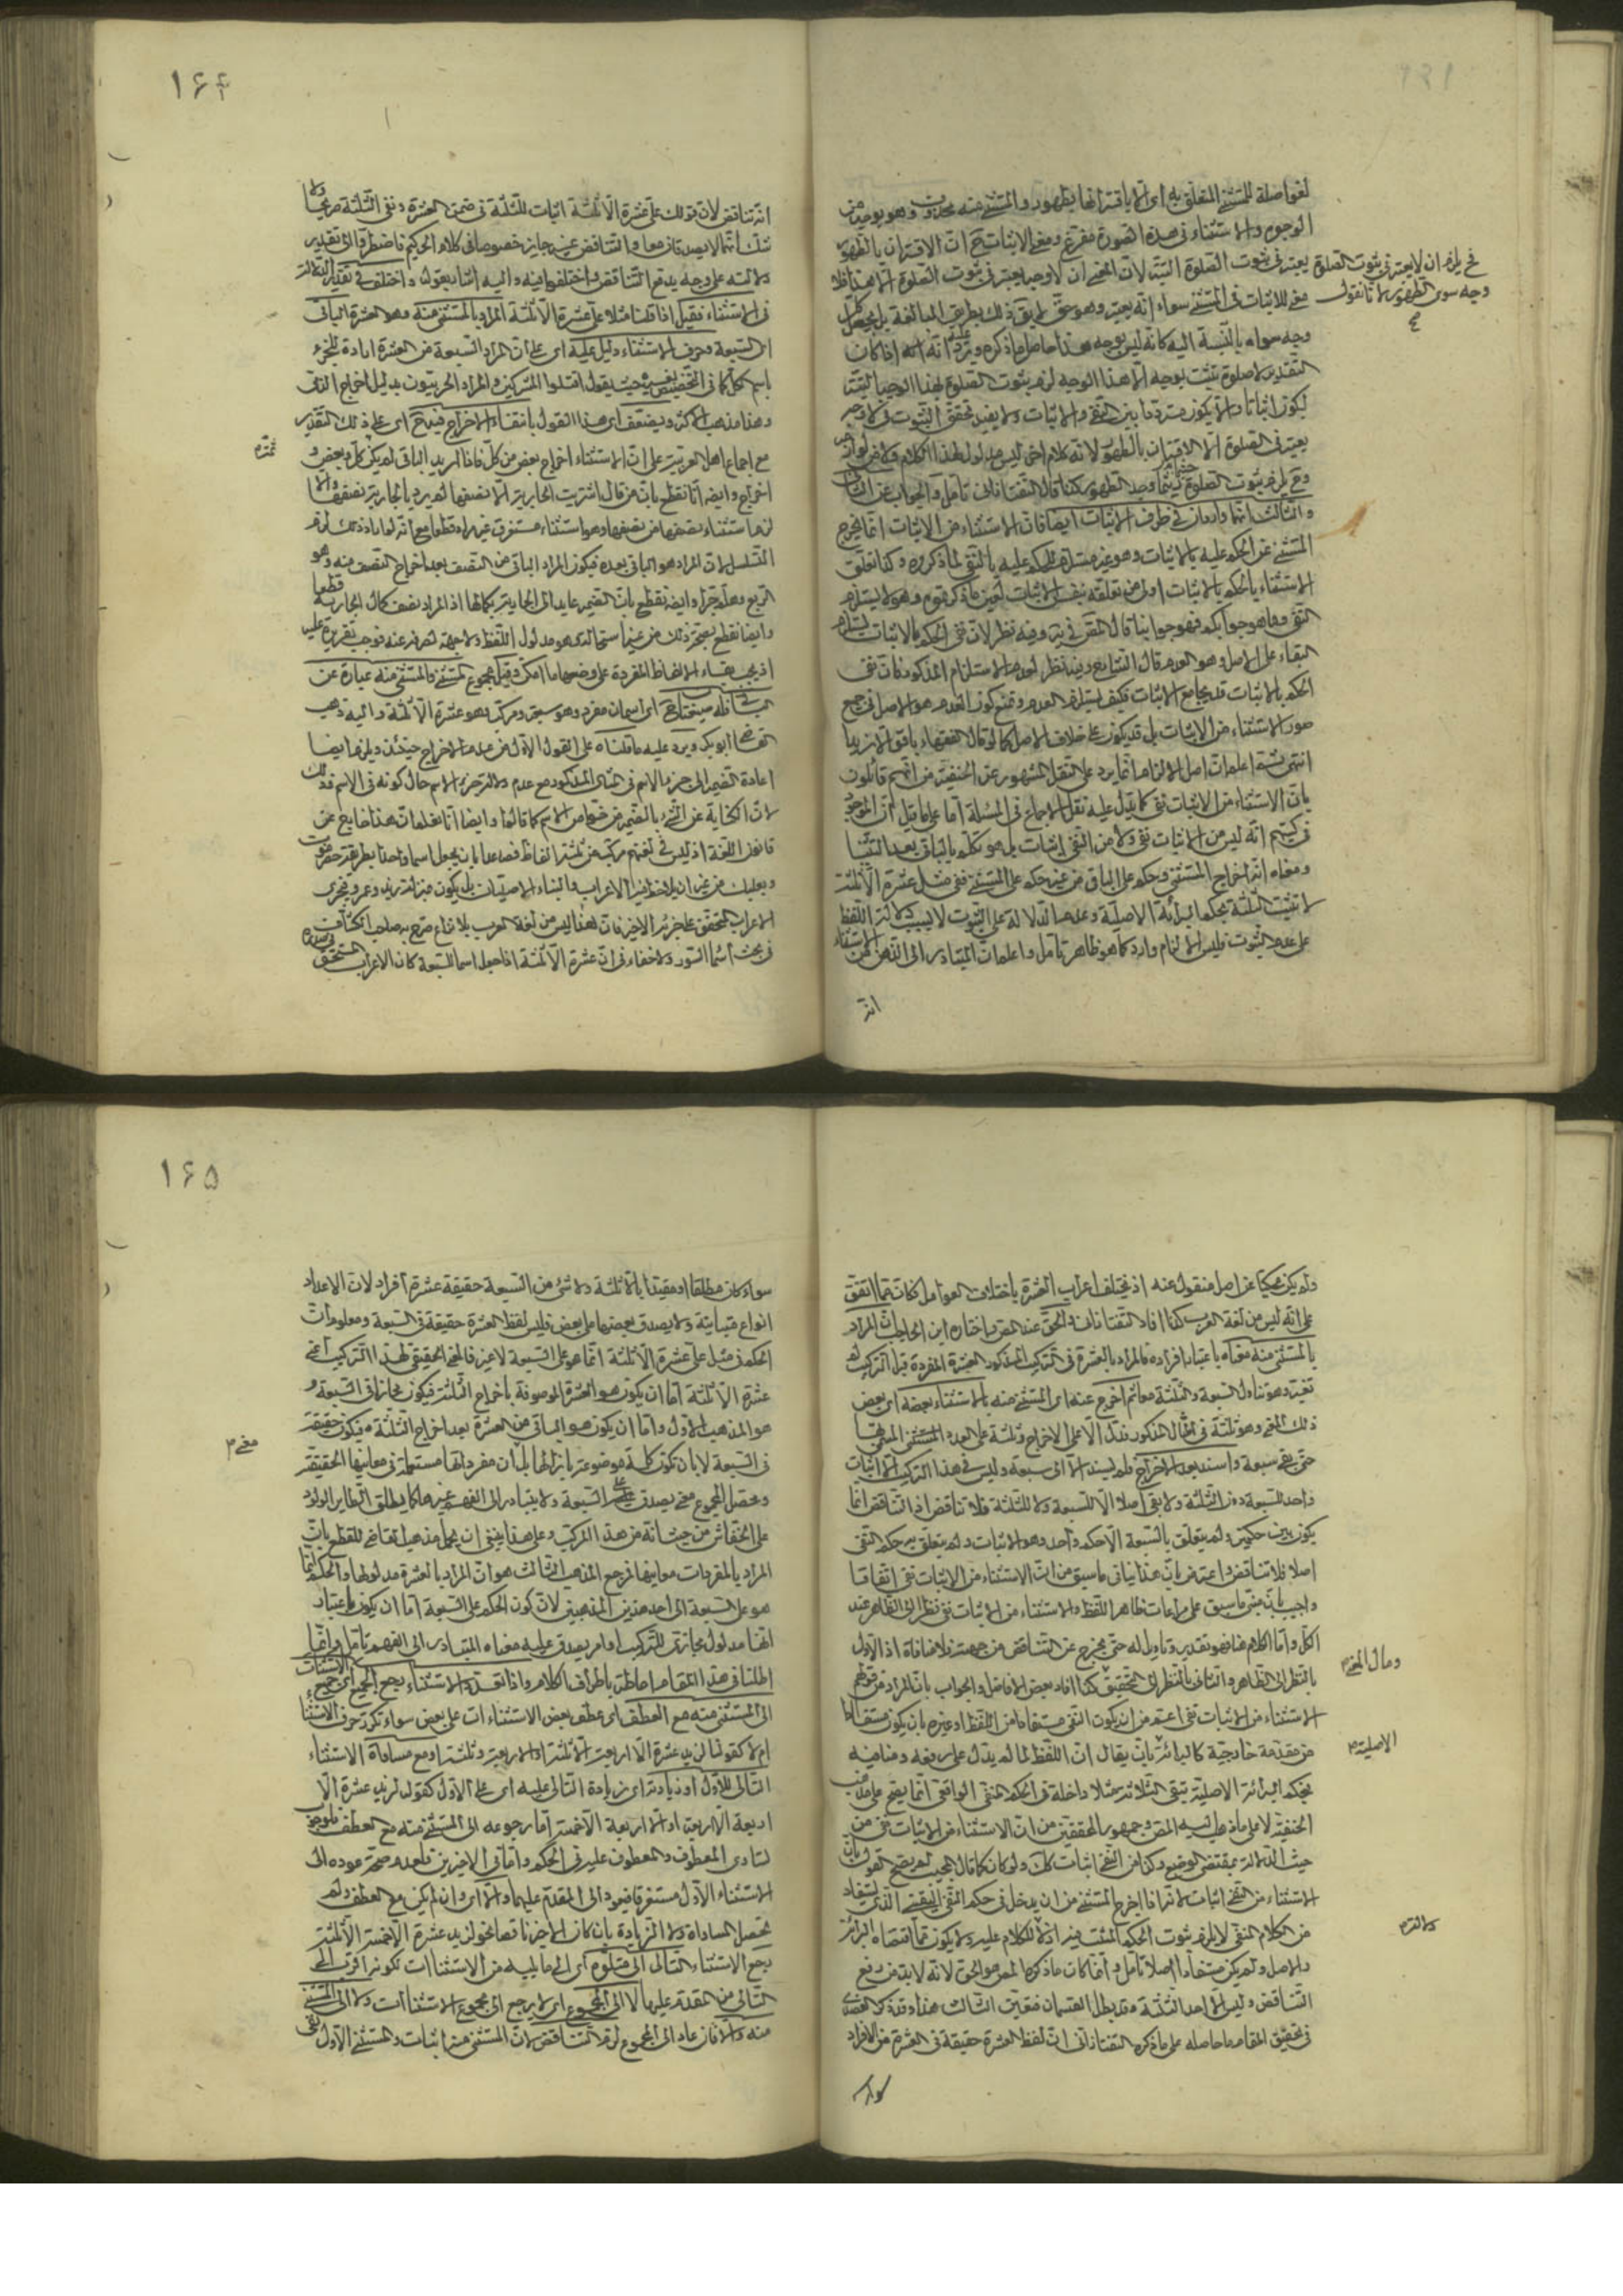 لغوا صلة للمستثنى المتعلق به اى الا باقترانها بطهور والمستثنى منه محذوف وهو بوجه من
الوجوه والاستثناء فى هذه الصورة مفرغ ومعنى الاثبات ح ان الاقتران بالطهور
يعتبر فى ثبوت الصلوة البتة لان المعنى ان لا وجه يعتبر فى ثبوت الصلوة الا هذا فلا
معنى للاثبات فى المستثنى سواء انه يعتبر وهو حق لا يق ذلك بطريق المبالغة بل يجعل كل
وجه سواه بالنسبة اليه كانه ليس بوجه هذا حاصل ما ذكره ويرد عليه انه اذا كان
التقدير لا صلوة تثبت بوجه الا هذا الوجه لزم ثبوت الصلوة بهذا الوجه البتة
ليكون اثباتا والا يكون مترددا بين النفى والاثبات ولا يفيد تحقق الثبوت
يعتبر فى الصلوة الا الاقتران بالطهور لانه كلام اخر ليس مدلول لهذا الكلام
وح يلزم ثبوت الصلوة وجد الطهور كذا قال التفتازانى تأمل والجواب عن الثانى
والثالث انهما واردان فى طرف الاثبات ايضا فان الاستثناء من الاثبات انما يخرج
المستثنى عن الحكم عليه بالاثبات وهو غير مستلزم للحكم عليه بالنفى لما ذكروه وكذا تعلق
الاستثناء بالحكم بالاثبات اولى من تعلقه بنفس الاثبات لعين ما ذكرتموه وهو لا يستلزم
النفى وما هو جوابكم فهو جوابنا قال المص فى وفيه نظر لان نفى الحكم بالاثبات يستلزم
البقاء على الاصل وهو العدم قال الشارح وفيه نظر لعدم الاستلزام المذكور فان نفى
الحكم بالاثبات قد يجامع الاثبات فكيف يستلزم العدم ونمنع كون العدم هو الاصل فى جميع
صور الاستثناء من الاثبات بل قد يكون على خلاف الاصل كما لو قال الفقهاء
انتهى ثمة اعلم ان اصل الالزام انما يرد على النقل المشهور عن الحنفية من انهم قائلون
بان الاستثناء من الاثبات نفى كما يدل عليه نقل الاجماع فى المسئلة اما على ما قيل ان الموجود
فى كتبهم انه ليس من الاثبات نفى ولا من النفى اثبات بل هو تكلم بالباقى بعد الثنيا
ومعناه انه اخراج المستثنى وحكم على الباقى من غير حكم على المستثنى ففى مثل عشرة الا ثلثة
لا تثبت الثلثة بحكم البراءة الاصلية وعدم الدلالة على الثبوت لا بسبب دلالة اللفظ
على عدم الثبوت فليس الالزام وارد كما هو ظاهر تأمل واعلم ان المتبادر الى الذهن من الاستثناء
انه
فح يلزم ان لا يعتبر فى ثبوت الصلوة
وجه سوى الطهور لانا نقول
١۶۴
انه تناقض لان قولك على عشرة الا ثلثة اثبات للثلثة فى ضمن العشرة ونفى الثلثة صريحا ولا
شك انهما لا يصدقان معا والتناقض غير جايز خصوصا فى كلام الحكيم فاضطروا الى تقدير
دلالته على وجه يدفع التناقض واختلفوا فيه واليه اشار بقوله واختلف فى تقدير الدلالة
فى الاستثناء فقيل اذا قلنا مثلا على عشرة الا ثلثة المراد بالمستثنى منه وهو العشرة الباقى
اى السبعة وحرف الاستثناء دليل عليه اى على ان المراد السبعة من العشرة ارادة للجزء
باسم الكل كما فى التخصيص بغيره حيث يقول اقتلوا المشركين والمراد الحربيون بدليل اخراج الذمى
وهذا مذهب الاكثر ويضعف اى هذا القول بانتفاء الاخراج فيه ح اى على ذلك التقدير
مع اجماع اهل العربية على ان الاستثناء اخراج بعض من كل فاذا اريد الباقى لم يكن كل وبعض و
اخراج وايضا انا نقطع بان من قال اشتريت الجارية الا نصفها لم يرد بالجارية نصفها والا
لزم استثناء نصفها من نصفها وهو استثناء مستغرق غير مراد قطعا مع انه لو اراد ذلك لزم
التسلسل لان المراد هو الباقى بعده فيكون المراد الباقى من النصف بعد اخراج النصف منه وهو
الربع وهلم جرا وايضا نقطع بان الضمير عايد الى الجارية بكمالها اذ المراد نصف كمال الجارية قطعا
اذ يجب بقاء الالفاظ المفردة على وضعها ما امكن وقيل مجموع المستثنى والمستثنى منه عبارة عن
الباقى فله صيغتان ح اى اسمان مفرد وهو سبعة ومركب وهو عشرة الا ثلثة واليه ذهب
القاضى ابو بكر ويرد عليه ما قلناه على القول الاول من عدم الاخراج حينئذ ويلزم ايضا
اعادة الضمير الى جزء الاسم فى المثال المذكور مع عدم دلالة جزء الاسم حال كونه فى الاسم
قانون اللغة اذ ليس فى لغتهم مركب من ثلثة الفاظ فصاعدا بان يجعل اسما واحدا بطريقة حضرموت
وبعلبك من غير ان يلاحظ فيه الاعراب والبناء الاصليان بل يكون بمنزلة زيد وعمرو ويجرى
الاعراب المستحق على جزئه الاخير فان هذا ليس من لغة العرب بلا نزاع صرح به صاحب الكشاف
فى بحث اسماء السور ولا خفاء فى ان عشرة الا ثلثة اذا جعل اسما للسبعة كان الاعراب المستحق
ولم يكن محكيا عن اصل منقول عنه اذ يختلف اعراب العشرة باختلاف العوامل فكان مما اتفق
على انه ليس من لغة العرب كذا افاد التفتازانى والحق عند المص واختاره ابن الحاجب ان المراد
بالمستثنى منه معناه باعتبار افراده فالمراد بالعشرة فى التركيب المذكور العشرة المفردة قبل التركيب لم
تغير وهو تناول السبعة والثلثة معا ثم اخرج عنه اى المستثنى منه بالاستثناء بعضه اى بعض
ذلك المعنى وهو ثلثة فى المثال المذكور فتدل الا على الاخراج وثلثة على العدد المستثنى المسمى بها
حتى بقى سبعة واسند بعد الاخراج فلم يسند الا الى سبعة وليس فى هذا التركيب الا اثبات
واحد للسبعة دون الثلثة ولا نفى اصلا الا للسبعة ولا للثلثة فلا تناقض اذ التناقض انما
يكون بين حكمين ولم يتعلق بالسبعة الا حكم واحد وهو الاثبات ولم يتعلق به حكم النفى
اصلا فلا تناقض واعترض بان هذا ينافى ما سبق من ان الاستثناء من الاثبات نفى اتفاقا
واجيب بان مبنى ما سبق على مراعات ظاهر اللفظ والاستثناء من الاثبات نفى نظرا الى الظاهر عند
الكل واما الكلام هنا فهو تقدير وتاويل له حتى يخرج عن التناقض من جهته فلا منافاة اذ الاول
بالنظر الى الظاهر والثانى بالنظر الى التحقيق كذا افاد بعض الافاضل والجواب بان المراد من قولهم
الاستثناء من الاثبات نفى اعم من ان يكون النفى مستفادا من اللفظ او غيره بان يكون مستفادا
من مقدمة خارجية كالبراءة بان يقال ان اللفظ لما لم يدل على رفعه ومنافيه
بحكم البراءة الاصلية تبقى الثلاثة مثلا داخلة فى الحكم المنفى الواقعى انما يصح على مذهب
الحنفية لا على ما ذهب اليه المص وجمهور المحققين من ان الاستثناء من الاثبات نفى من
حيث الدلالة بمقتضى الوضع وكذا من النفى اثبات كك ولو كان كما قال المجيب لم يصح القول بان
الاستثناء من النفى اثبات لانه اذا اخرج المستثنى من ان يدخل فى حكم النفى الذى يستفاد
من الكلام المنفى لا يلزم ثبوت الحكم المثبت فيه اذ لا للكلام عليه ولا يكون مما اقتضاه البراءة
والاصل ولم يكن مستفادا اصلا تأمل وانما كان ما ذكره المص هو الحق لانه لا بد من دفع
التناقض وليس الا احد الثلثة وقد بطل القسمان فتعين الثالث هذا وقد ذكر العضدى
فى تحقيق المقام ما حاصله على ما ذكره التفتازانى ان لفظ العشرة حقيقة فى العشرة من الافراد
سواء
ومال المعنى
الاصلية
ولا لته
١۶۵
سواء كان مطلقا او مقيدا بالا ثلثة ولا شئ من السبعة حقيقة عشرة افراد لان الاعداد
انواع متباينة ولا يصدق بعضها على بعض فليس لفظ العشرة حقيقة فى السبعة ومعلوم ان
الحكم فى مثل على عشرة الا ثلثة انما هو على السبعة لا غير فالمعنى الحقيقى لهذا التركيب اعنى
عشرة الا ثلثة اما ان يكون هو العشرة الموصوفة باخراج الثلثة فيكون مجازا فى السبعة و
هو المذهب الاول واما ان يكون هو الباقى من العشرة بعد اخراج الثلثة فيكون حقيقة
فى السبعة لا بان تكون كلمة موضوعة بازائها بل ان مفرداتها مستعملة فى معانيها الحقيقة
ومحصل المجموع معنى يصدق على السبعة ولا يتبادر الى الفهم غيرها كما يطلق الطاير الولود
على الخفاش من حيث انه من هذا المركب وعلى هذا ينبغى ان يحمل مذهب القاضى للقطع بان
المراد بالمفردات معانيها فمرجع المذهب الثالث هو ان المراد بالعشرة مدلولها والحكم انما
هو على السبعة الى احد هذين المذهبين لان كون الحكم على السبعة اما ان يكون باعتبار
انها مدلول مجازى للتركيب او امر يصدق عليه معناه المتبادر الى الفهم تأمل وانما
اطلنا فى هذا المقام احاطة باطراف الكلام واذا تعدد الاستثناء يرجع الجميع اى جميع الاستثناءات
الى المستثنى منه مع العطف اى عطف بعض الاستثناءات على بعض سواء تكرر حرف الاستثناء
ام لا كقولنا لزيد عشرة الا اربعة والا ثلثة او الا اربعة وثلثة او مع مساواة الاستثناء
التالى للاول او زيادته اى زيادة التالى عليه اى على الاول كقولك لزيد عشرة الا
اربعة الا اربعة او الا اربعة الا خمسة اما رجوعه الى المستثنى منه مع العطف فلوجوب
تساوى المعطوف والمعطوف عليه فى الحكم واما فى الاخيرين فلعدم صحة عوده الى
الاستثناء الاول مستغرقا فيعود الى المقدم عليهما والا اى وان لم يكن مع العطف ولم
تحصل المساواة ولا الزيادة بان كان الاخير ناقصا نحو لزيد عشرة الا خمسة الا ثلثة
يرجع الاستثناء التالى الى متلوه اى الى ما يليه من الاستثناءات لكونه اقرب الى
التالى من المقدم عليها لا الى المجموع اى لا يرجع الى مجموع الاستثناءات ولا الى المستثنى
منه والا فان عاد الى المجموع لزم التناقض لان المستثنى منه اثبات والمستثنى الاول نفى